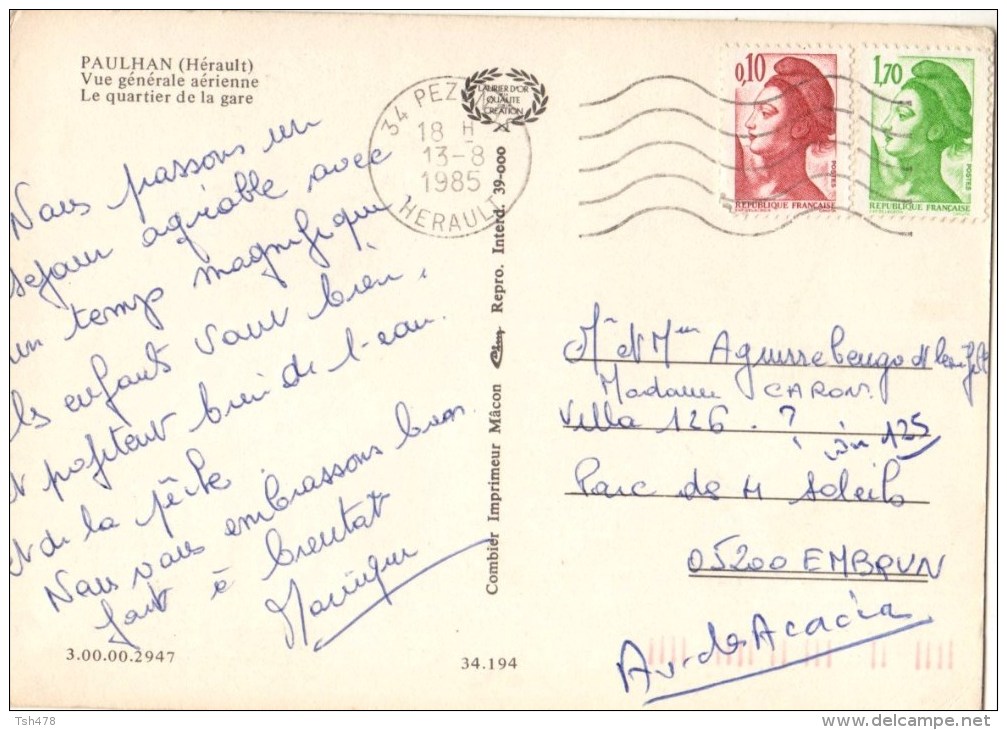 PAULHAN (Hérault)
Vue générale aérienne
Le quartier de la gare
Nous passons un
sejour agréable avec
un temp magnifique
les enfants vont bien,
et profitent bien de l'eau.
et de la pêche
Nous vous embrassons bien
fort à bientot
3.00.00.2947
34.194
Combier Imprimeur Mâcon Repro. Interd. 39-000
LAURIER D'OR
QUALITÉ
CRÉATION
34 PEZ
18 H
13-8
1985
HERAULT
0,10
POSTES
REPUBLIQUE FRANÇAISE
1,70
POSTES
REPUBLIQUE FRANÇAISE
Mr et Mme
Madame CARON.
Villa 126. ?
ou 125
Parc de Soleils
05200 EMBRUN
Av. de Acacia
Tsh478
http://www.delcampe.net